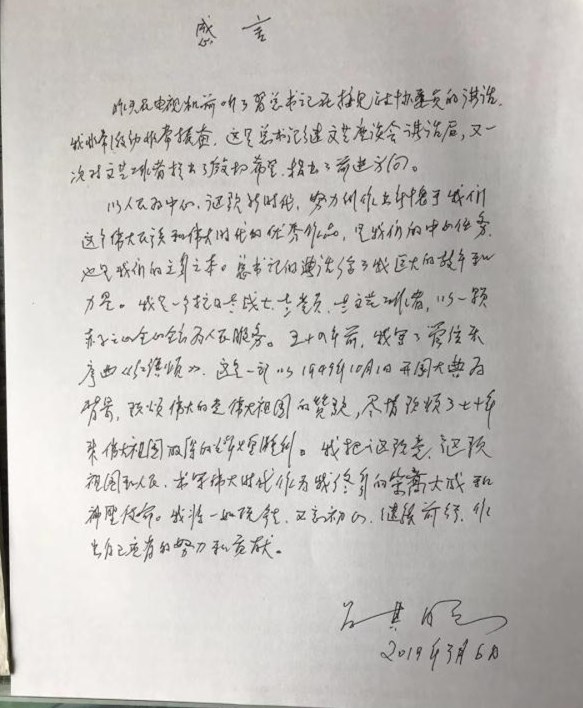 感言
昨天在电视机前听了习总书记在接见政协委员的讲话,
我非常激动非常振奋。这是总书记继文艺座谈会讲话后,又一
次对文艺工作者提出了殷切希望,指出了前进方向。
以人民为中心,讴歌新时代,努力创作出无愧于我们
这个伟大民族和伟大时代的优秀作品,是我们的中心任务,
也是我们的立身之本。总书记的讲话给了我巨大的鼓舞和
力量。我是一个抗日老战士,老党员,老文艺工作者,以一颗
赤子之心全心全意为人民服务。五十四年前,我写了管弦乐
序曲《红旗颂》,这是一部以1949年10月1日开国大典为
背景,歌颂伟大的党伟大祖国的赞歌,尽情歌颂了七十年
来伟大祖国取得的辉煌胜利。我把讴歌党、讴歌
祖国和人民、书写伟大时代作为我终身的崇高天职和
神圣使命。我将一如既往,不忘初心,继续前行,作
出自己应有的努力和贡献。
吕其明
2019年3月6日